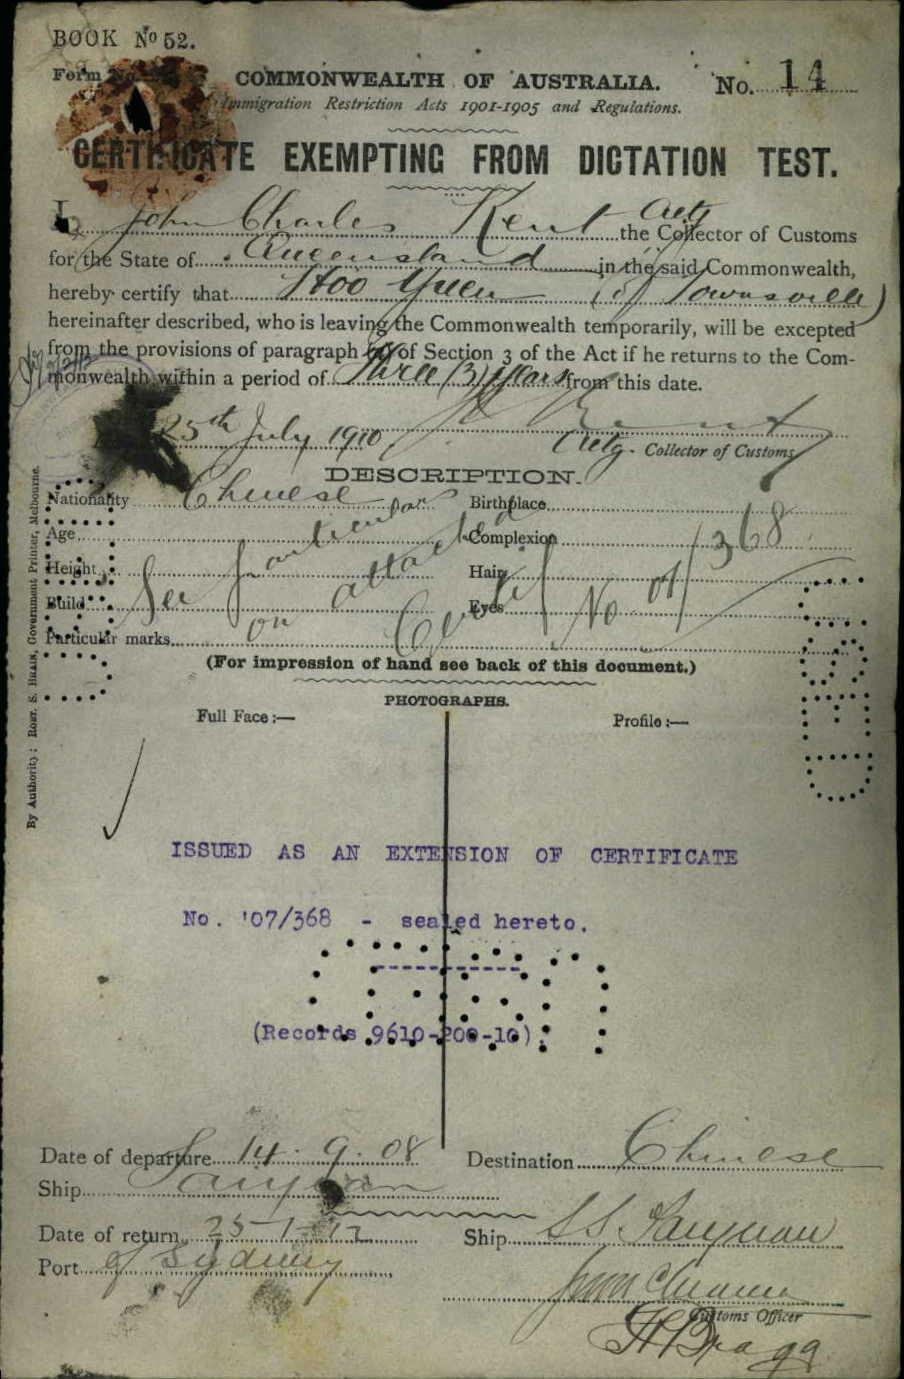 BOOK No 52.
Form No.
COMMONWEALTH OF AUSTRALIA.
No. 14
Immigration Restriction Acts 1901-1905 and Regulations.
CERTIFICATE EXEMPTING FROM DICTATION TEST.
I, John Charles Kent Actg the Collector of Customs
for the State of Queensland in the said Commonwealth,
hereby certify that Hoo Yuen (of Townsville)
hereinafter described, who is leaving the Commonwealth temporarily, will be excepted
from the provisions of paragraph of Section 3 of the Act if he returns to the Com-
monwealth within a period of Three (3) years from this date.
25th July 1910
Actg. Collector of Customs
DESCRIPTION.
Nationality Chinese
Birthplace
Age
Complexion
Height
Hair
Build
Eyes
Particular marks
See particulars
on attached
Certf No 07/368
(For impression of hand see back of this document.)
PHOTOGRAPHS.
Full Face :—
Profile :—
By Authority : ROBT. S. BRAIN, Government Printer, Melbourne.
ISSUED AS AN EXTENSION OF CERTIFICATE
No. '07/368 - sealed hereto.
(Records 9610-200-10).
Date of departure 14.9.08
Destination Chinese
Ship Taiyuan
Date of return 25-1-12
Ship S.S. Taiyuan
Port of Sydney
Customs Officer
H Bragg